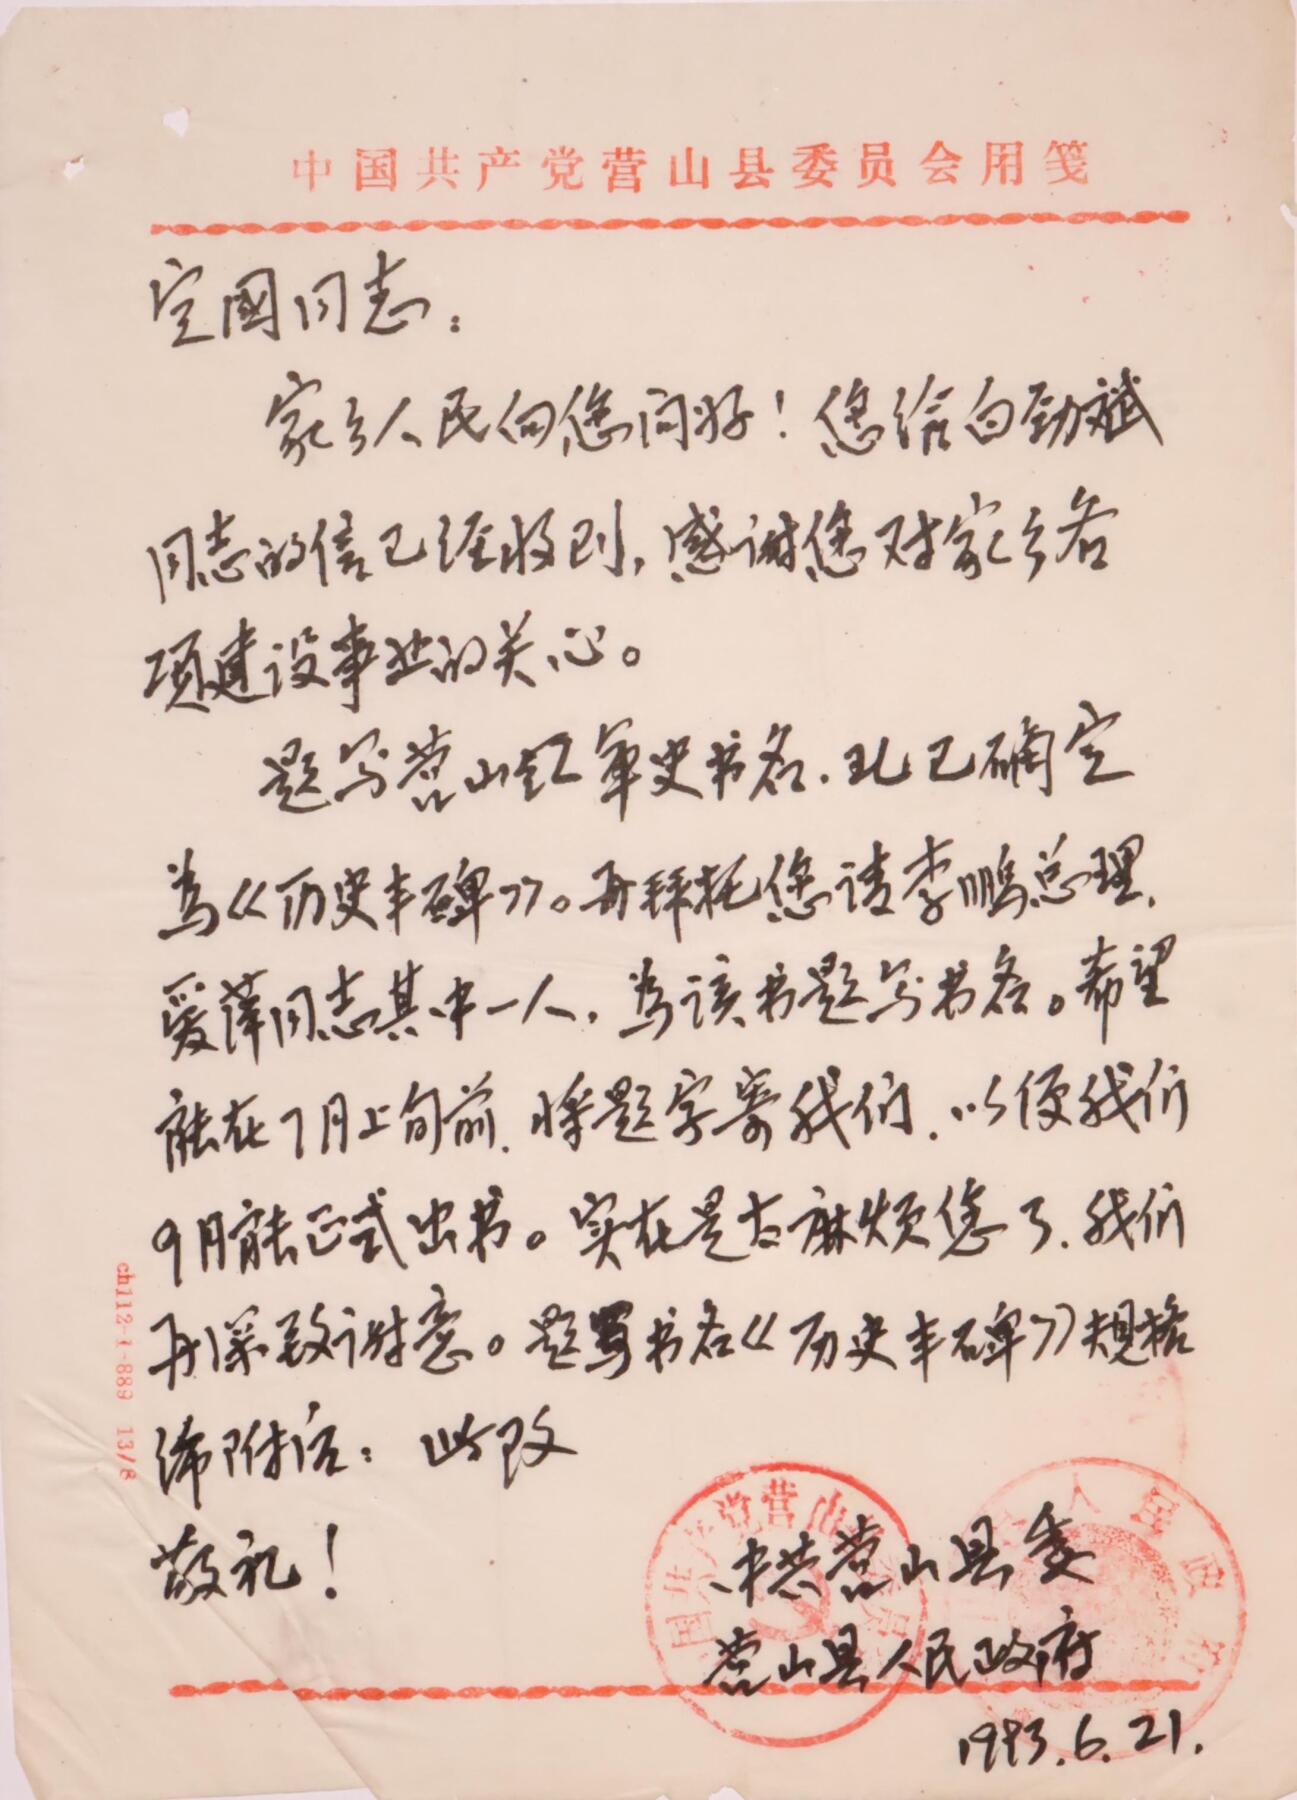 中国共产党营山县委员会用笺
定國同志：
家乡人民向您问好！您给白劲斌
同志的信已经收到，感谢您对家乡各
项建设事业的关心。
题写营山红军史书名，现已确定
为《历史丰碑》。再拜托您请李鹏总理、
爱萍同志其中一人，为该书题写书名。希望
能在7月上旬前，将题字寄我们，以便我们
9月能正式出书。实在是太麻烦您了，我们
再深致谢意。题写书名《历史丰碑》规格
附后：此致
敬礼！
中共营山县委
营山县人民政府
1993.6.21.
ch112-1-889 13/8
国共产党营山
人民政府